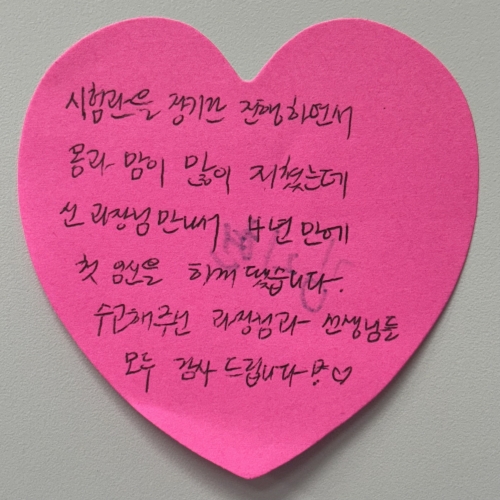 시험관을 장기간 진행하면서
몸과 맘이 많이 지쳤는데
신 과장님 만나서 4년 만에
첫 임신을 하게 됐습니다.
수고해주신 과장님과 선생님들
모두 감사 드립니다 ♡